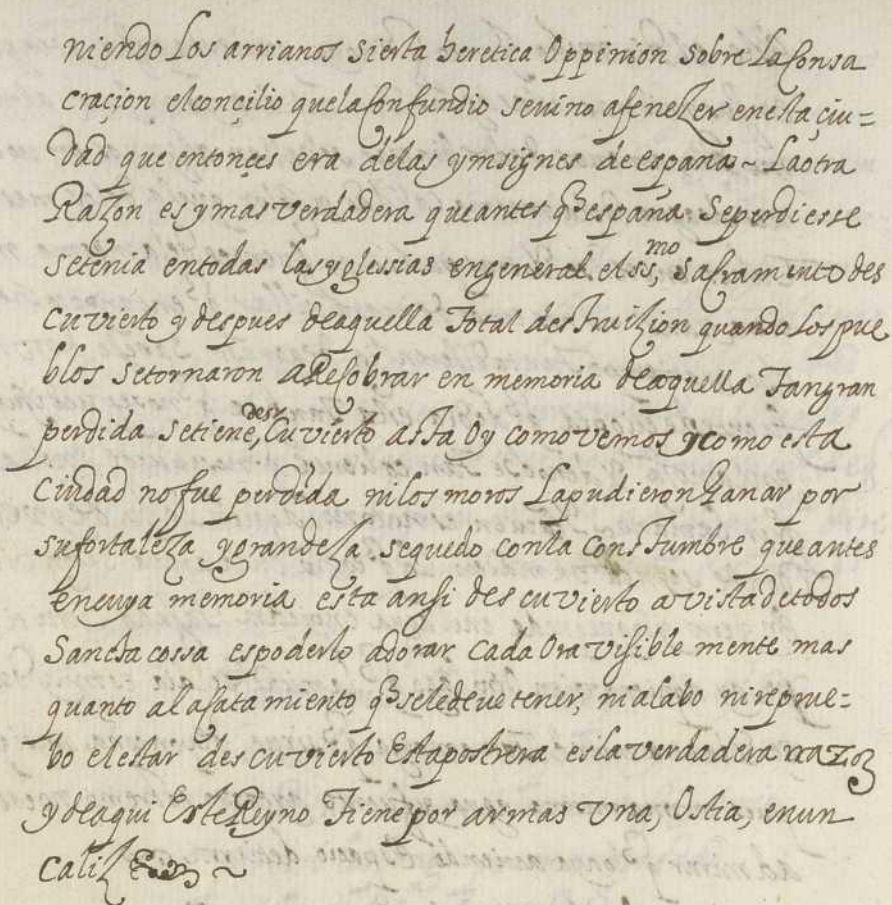 niendo Los arrianos sierta heretica Oppinion sobre La Consa
cracion el concilio que la Confundio se vino a fenezer en esta çiu=
dad que entonçes era de las ymsignes de españa~ La otra
Razon es y mas verdadera que antes q̃ españa se perdiesse
se tenia en todas las yglessias en general el ss,mo sacramento des
cuvierto y despues de aquella Total destruizion quando Los pue
blos se tornaron a ReCobrar en memoria de aquella Tan gran
perdida se tiene, des Cuvierto asta Oy como vemos y como esta
Ciudad no fue perdida ni los moros La pudieron Ganar por
su fortaleza y grandeza se quedo con la ConsTumbre que antes
en cuya memoria esta ansi des cuvierto a vista de todos
Sancta cossa es poderlo adorar Cada Ora visible mente mas
quanto al acatamiento q̃ se le deve tener, ni alabo ni reprue=
bo el estar des cuvierto Esta postrera es la verdadera rrazon
y de aqui Este Reyno Tiene por armas Una, Ostia, en un
Caliz ~